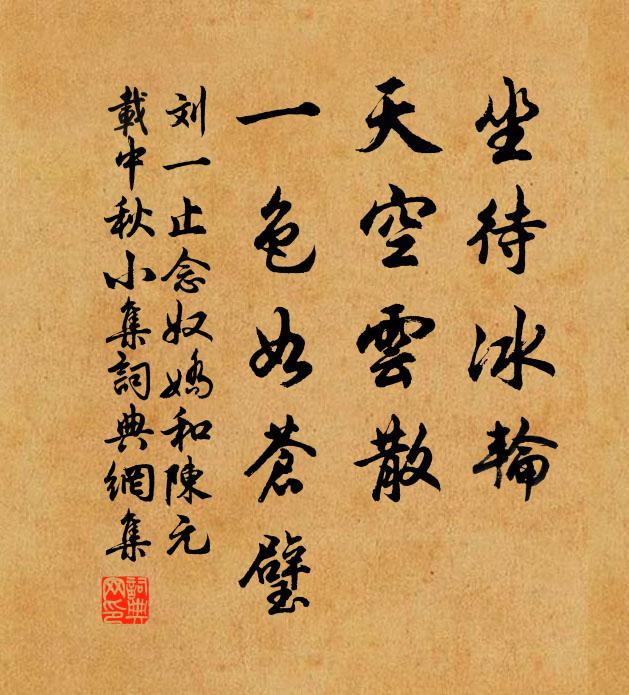 坐待冰輪
天空雲散
一色如蒼璧
刘一止念奴嬌和陳元
載中秋小集詞典網集
詞典網印